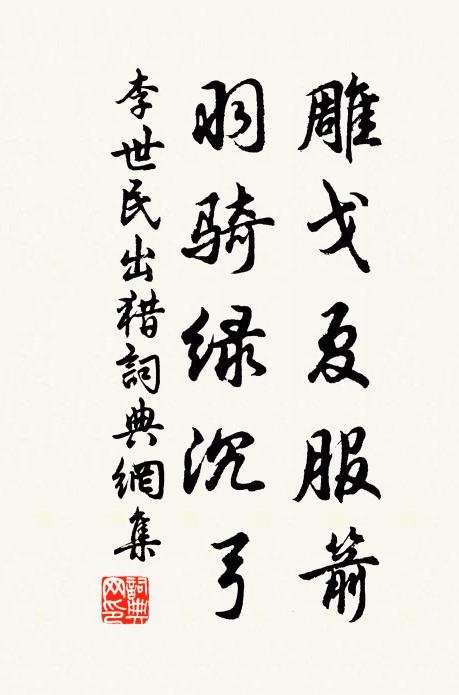 雕戈夏服箭
羽骑绿沉弓
李世民出猎詞典網集
詞典网印